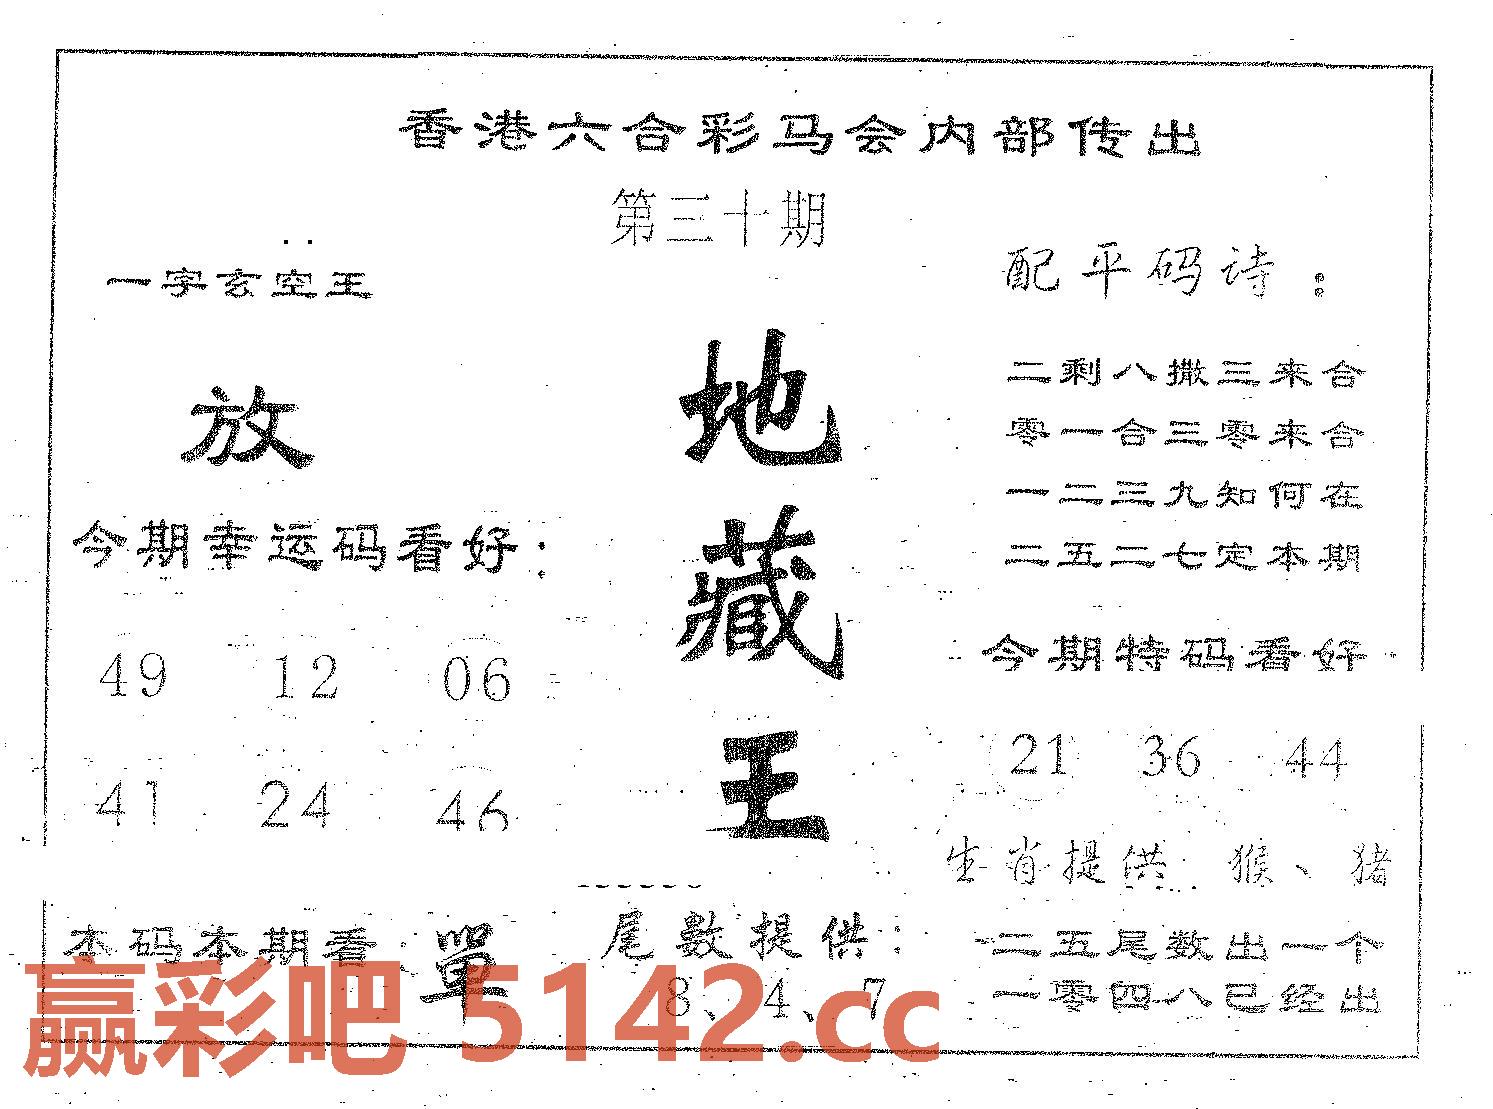 香港六合彩马会内部传出
第三十期
一字玄空王
放
今期幸运码看好：
49 12 06
41 24 46
本码本期看：單
地藏王
尾數提供：
8、4、7
配平码诗：
二剩八撒三来合
零一合三零来合
一二三九知何在
二五二七定本期
今期特码看好
21 36 44
生肖提供：猴、猪
二五尾数出一个
一零四八已经出
赢彩吧 5142.cc